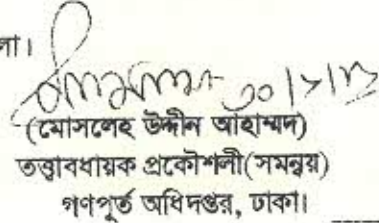 লা।
৩০/১/১৩
(মোসলেহ উদ্দীন আহাম্মদ)
তত্ত্বাবধায়ক প্রকৌশলী(সমন্বয়)
গণপূর্ত অধিদপ্তর, ঢাকা।